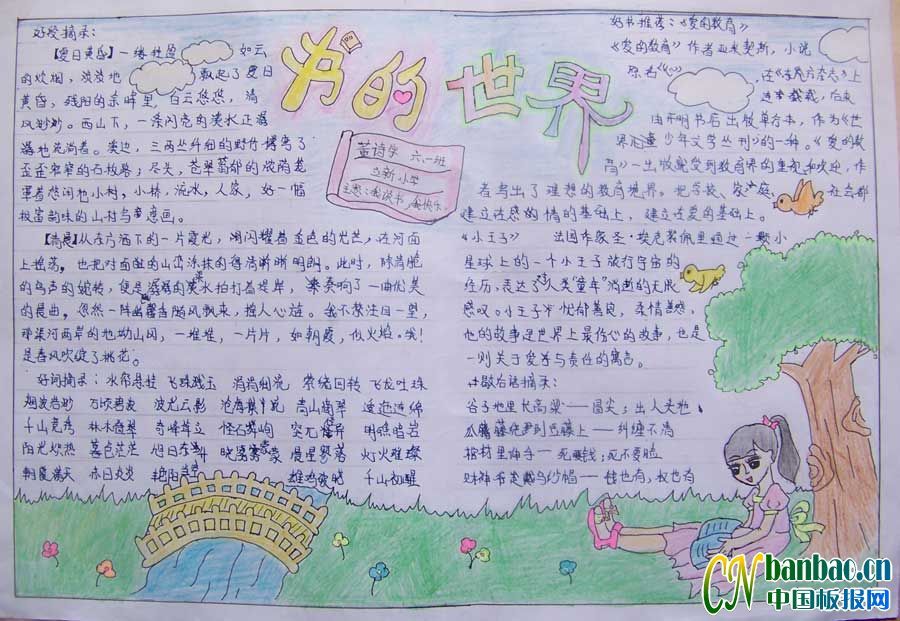 好段摘录：
【夏日黄昏】一缕 如云
的炊烟，淡淡地 飘起了夏日
黄昏，残阳的余晖里，白云悠悠，清
风妙妙。西山下，一条闪亮的溪水正潺
潺地流淌着。溪边，三两丛纤细的野竹掩离了
歪歪窄窄的石板路；尽头，苍翠蓊郁的浓荫笼
罩着悠闲的小村，小桥，流水，人家，好一幅
极富韵味的山村写意画。
【清晨】从东方洒下的一片霞光，闪闪耀着金色的光芒，在河面
上摇荡，也把对面的山峦涂抹的得清晰明朗。此时，除清脆
的鸟声的婉转，便是溪水拍打着堤岸，演奏响了一曲优美
的晨曲。忽然一阵幽馨香随风飘来，撩人心怀。我不禁注目一望，
那梁河两岸的山冈，一堆堆，一片片，如朝霞，似火焰。哦！
是春风吹绽了桃花。
好词摘录：水帘悬挂 飞珠溅玉 涓涓细流 萦绕回转 飞龙吐珠
烟波浩渺 万顷碧波 波光云影 沧海 青山叠翠 逶迤连绵
千山竞秀 林木叠翠 奇峰耸立 怪石嶙峋 明暗
阳光炽热 暮色茫茫 旭日东 晨星寥落 灯火璀璨
朝霞满天 赤日炎炎 艳阳 雄鸡破晓 千山初醒
书的世界
董诗宇 六一班
立新小学
主题：爱读书，会快乐。
好书推荐：《爱的教育》
《爱的教育》作者亚米契斯，小说
原名《心》 ，在《 杂志》上
连续载载，后来
由开明书店出版单行本，作为《世
界 少年文学丛刊》的一种。《爱的教
育》一出版就受到教育界的重视和欢迎，作
者写出了理想的教育境界。把学校、家庭、社会都
建立在感的情的基础上，建立在爱的基础上。
《小王子》 法国作家圣·埃克絮佩里通过一颗小
星球上的一个小王子旅行宇宙的
经历，表达了对人类“童年”消逝的无限
感叹。小王子 忧郁善良，柔情善感，
他的故事是世界上最伤心的故事，也是
一则关于爱等与责任的寓言。
歇后语摘录：
谷子地里长高粱——冒尖；出人头地
瓜藤 到豆藤上——纠缠不清
棺材里伸手——死要钱；死不要脸
财神爷 戴乌纱帽——钱也有，权也有
CN banbao.cn
中国板报网